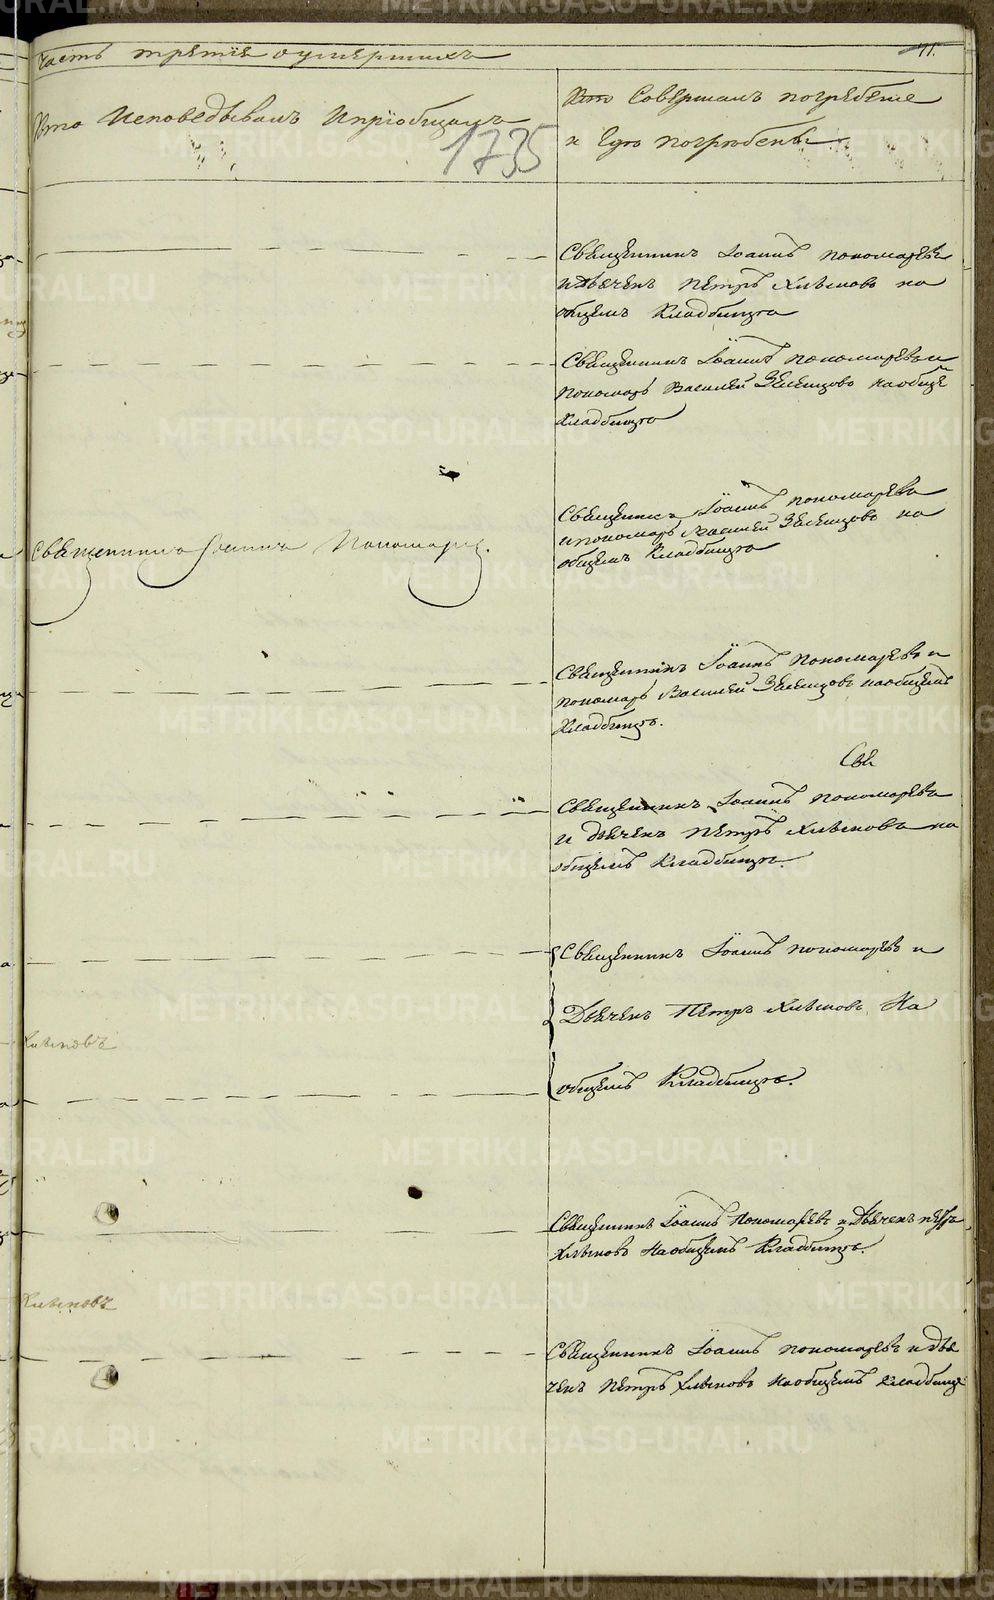 Часть третiе о умершихъ
71.
Кто Исповедывалъ Ипрiобщалъ
1735
Кто Совершалъ погребенiе
и гдѣ погребены
Священникъ Iоаннъ пономаревъ
и Дьячекъ Петръ Хлыновъ на
общемъ Кладбищѣ
Священникъ Iоаннъ пономаревъ и
пономарь Василей Зеленцовъ наобще
Кладбищѣ
Священника Iоанна Пономарев.
Священника Iоаннъ пономаревъ
ипономарь Василей Зеленцовъ на
общемъ Кладбищѣ
Священникъ Iоаннъ пономаревъ и
пономарь Василей Зеленцовъ наобщемъ
Кладбищѣ.
Свя
Священникъ Iоаннъ пономаревъ
и дьячекъ Петръ Хлыновъ на
общемъ Кладбищѣ.
Священникъ Iоаннъ пономаревъ и
Дьячекъ Петръ Хлыновъ На
Хлыновъ
общемъ Кладбищѣ.
Священникъ Iоаннъ Пономаревъ и Дьячекъ петръ
Хлыновъ Наобщемъ Кладбищѣ.
Хлыновъ
Священникъ Iоаннъ пономаревъ и дья
чекъ Петръ Хлыновъ Наобщемъ кладбище
METRIKI.GASO-URAL.RU